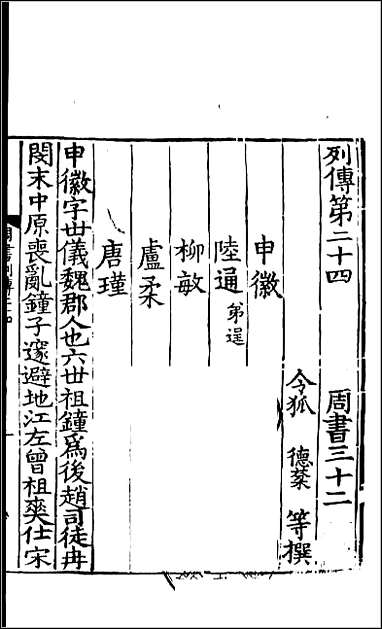 列傳第二十四　周書三十二
令狐　德棻　等撰
申徽
陸通　弟逞
柳敏
盧柔
唐瑾
申徽字世儀魏郡人也六世祖鐘為後趙司徒冉
閔末中原喪亂鐘子邃避地江左曾祖爽仕宋